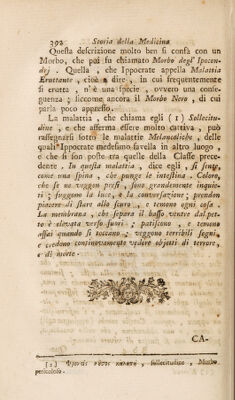 392 Storia della Medicina
Questa descrizione molto ben si confà con un
Morbo, che poi fu chiamato Morbo degl' Ipocon-
drj. Quella, che Ippocrate appella Malattia
Eruttante, cioè a dire, in cui frequentemente
si erutta, n'è una specie, ovvero una conse-
guenza; siccome ancora il Morbo Nero, di cui
parla poco appresso.
La malattia, che chiama egli (1) Sollecitu-
dine, e che afferma essere molto cattiva, può
rassegnarsi sotto le malattie Melancoliche, delle
quali Ippocrate medesimo favella in altro luogo
e che si son poste tra quelle della Classe prece-
dente. In questa malattia, dice egli, si sente
come una spina, che punge le intestina. Coloro,
che se ne veggon presi, sono grandemente inquie-
ti; fuggono la luce, e la conversazione; prendon
piacere di stare allo scuro, e temono ogni cosa.
La membrana, che separa il basso ventre dal pet-
to è elevata verso fuori; patiscono, e temono
assai quando si toccano, veggono terribili sogni,
e credono continovamente vedere obbjetti di terrore,
e di morte.
CA-
[1] Φροντὶς νοῦσος χαλεπὴ, sollecitudine, Morbo
pericoloso.